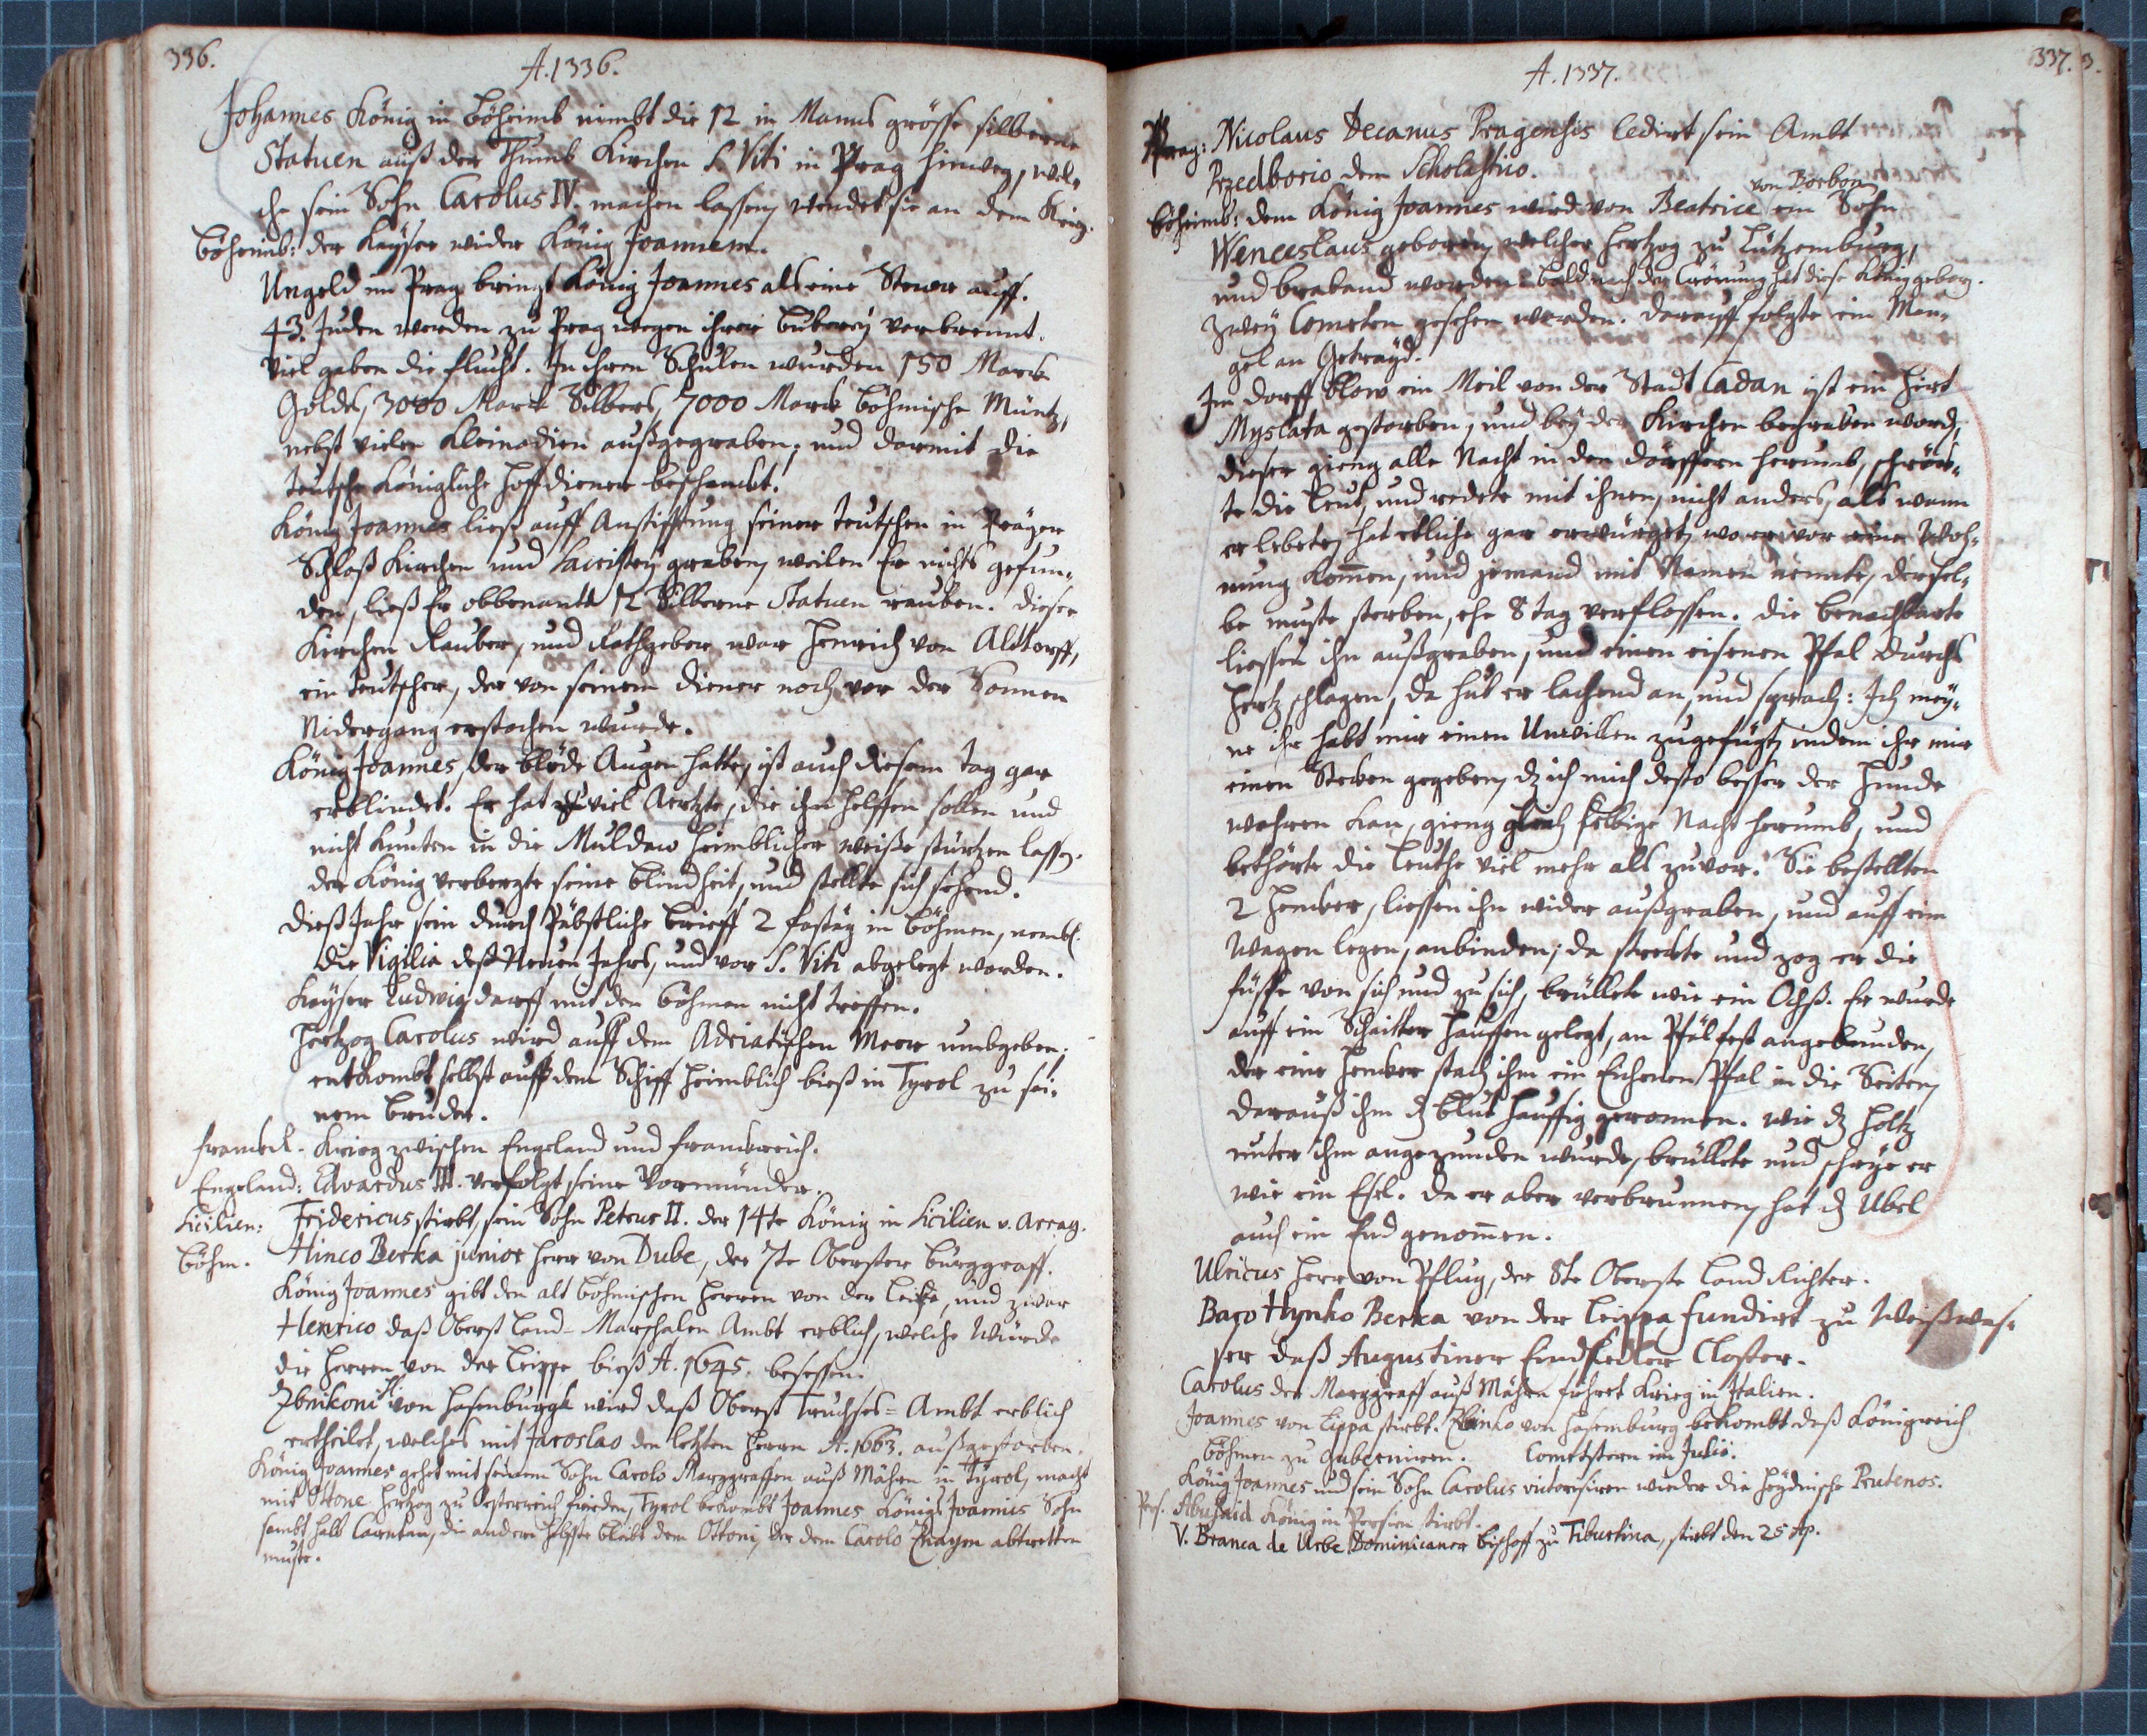 336.
A. 1336.
Johannes König in Böheimb nimbt die 12 in Manns grösse silberne
Statuen auß der Thumb Kirchen S. Viti in Prag hinweg, wel-
che sein Sohn Carolus IV. machen lassen, wendet sie an den Krieg.
Böheimb: der Keyser wider König Joannem.
Ungeld in Prag bringt König Joannes als eine Stewr auff.
43. Juden werden zu Prag wegen ihrer Buberey verbrennt.
Viel gaben die Flucht. In ihren Schulen wurden 150 Marck
Goldes, 3000 Marck Silbers, 7000 Marck Böhmische Müntz,
nebst vielen Kleinodien außgegraben, und darmit die
teutsche Königliche Hoffdiener beschenckt.
König Joannes ließ auff Anstifftung seiner teutschen in Prager
Schloß Kirchen und Sacristey graben, weilen Er nichts gefun-
den, ließ Er obbenante 12 Silberne Statuen rauben. Dieser
Kirchen Rauber, und Rathgeber war Henrich von Aldtorff,
ein teutscher, der von seinem Diener noch vor der Sonnen
Nidergang erstochen wurde.
König Joannes, der blöde Augen hatte, ist auch diesem Tag gar
erblindet. Er hat viel Aertzte, die ihm helffen sollen und
nicht kunten in die Muldaw heimblicher weiße stürtzen lassen.
der König verbergte seine Blindheit, und stellte sich sehend.
Dieß Jahr sein durch Päbstliche Brieff 2 Fastäg in Böhmen, nembl.
die Vigilia deß Neuen Jahrs, und vor S. Viti abgelegt worden.
Keyser Ludwig darff mit den Böhmen nicht treffen.
Hertzog Carolus wird auff dem Adriatischen Meer umbgeben,
entkombt selbst auff dem Schiff heimblich bieß in Tyrol zu sei-
nem Bruder.
Franckr. Krieg zwischen Engeland und Franckreich.
Engeland: Edvardus III. verfolgt seine Vormünder.
Sicilien: Fridericus stirbt, sein Sohn Petrus II. der 14te König in Sicilien v. Arrag.
Böhm. Hinco Berka junior Herr von Dube, der 7te Oberster Burggraff.
König Joannes gibt den alt Böhmischen Herren von der Leippe, und zwar
Henrico daß Oberst Land-Marschalen Ambt erblich, welche Würde
die Herren von der Leippe bieß A. 1645. besessen.
Zbinkoni H. von Hasenburgk wird daß Oberst Truchses-Ambt erblich
ertheilet, welches mit Jaroslao den letzten Herren A. 1663. außgestorben.
König Joannes gehet mit seinem Sohn Carolo Marggraffen auß Mähren in Tyrol, macht
mit Ottone Hertzog zu Oesterreich Frieden, Tyrol bekombt Joannes Königs Joannis Sohn
sambt halb Carnten, die andere Helffte bleibt dem Ottoni, der dem Carolo Znaym abtretten
muste.
337.
A. 1337.
Prag: Nicolaus Decanus Pragensis cedirt sein Ambt
Przedborio dem Scholastico.
von Borbon
Böheimb: dem König Joannes wird von Beatrice ein Sohn
Wenceslaus geboren, welcher Hertzog zu Lützemburg,
und Braband worden. Bald nach der Crönung hat diese König geborn.
Zwey Cometen gesehen werden. Darauff folgte ein Man-
gel an Getrayd.
Im Dorff Blow ein Meil von der Stadt Cadan ist ein Hirt
Myslata gestorben, und bey der Kirchen begraben word.
Dieser gieng alle Nacht in den Dörffern herumb, schrök-
te die Leut, und redete mit ihnen, nicht anders, als wann
er lebete, hat etliche gar erwürget, wo er vor eine Woh-
nung kommen, und jemand mit Namen nennte, dersel-
be muste sterben, ehe 8 Tag verflossen. Die benachbarte
liessen ihn außgraben, und einen eisenen Pfal durchs
Hertz schlagen, da hub er lachend an, und sprach: Ich mey-
ne ihr habt mir einen Unwillen zugefügt, indem ihr mir
einen Stecken gegeben, dz ich mich desto besser der Hunde
wehren kan, gieng gleich selbige Nacht herumb, und
bethörte die Leuthe viel mehr als zuvor. Sie bestellten
2 Hencker, liessen ihn wider außgraben, und auff ein
Wagen legen, anbinden, da streckte und zog er die
Füsse von sich und zu sich, brüllete wie ein Ochß. Er wurde
auff ein Scheitter Hauffen gelegt, an Pfäl fest angebunden,
der eine Hencker stach ihm ein Eichenen Pfal in die Seiten,
darauß ihm dz Blut häuffig geronnen. Wie dz Holtz
unter ihm angezunden wurde, brüllete und schrye er
wie ein Esel. Da er aber verbrunnen, hat dz Ubel
auch ein End genommen.
Ulricus Herr von Pflug, der 8te Oberste Land Richter.
Baro Hynko Berka von der Leippa fundirt zu Weißwas-
ser daß Augustiner Einsidler Closter.
Carolus der Marggraff auß Mähren führet Krieg in Italien.
Joannes von Lippa stirbt. Zbinko von Hasemburg bekombt deß Königreich
Böhmen zu guberniren. Cometstern im Julio.
König Joannes und sein Sohn Carolus victorisiren wieder die Heydnische Prutenos.
Pers. Abusaid König in Persien stirbt.
V. Branca de Urbe Dominicaner Bischoff zu Tiburtina, stirbt den 25 Ap.